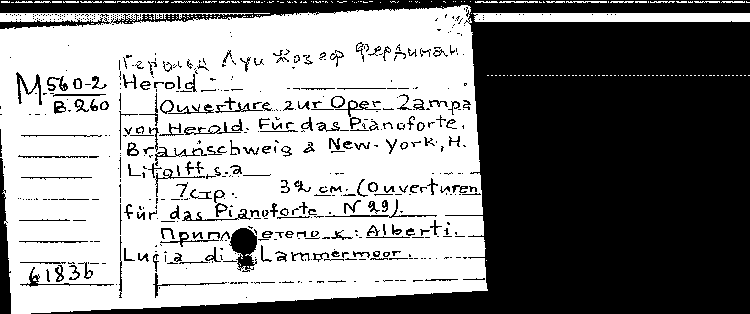 Герольд Луи Жозеф Фердинан.
М 560-2
В. 260
Herold.
Ouverture zur Oper Zampa
von Herold. Für das Pianoforte.
Braunschweig & New-York, H.
Litolff, s.a
7 стр. 32 см. (Ouverturen
für das Pianoforte. N 29).
Приплетено к: Alberti.
Lucia di Lammermoor.
6183b